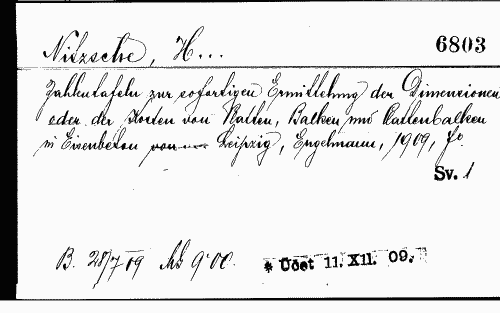 Nitzsche, H...
6803
Zahlentafeln zur sofortigen Ermittelung der Dimensionen
oder der Kosten von Platten, Balken und Plattenbalken
in Eisenbeton Leipzig, Engelmann, 1909, f.
Sv. 1
B. 28/7 09 Mk 9·00.
* Účet 11. XII. 09.